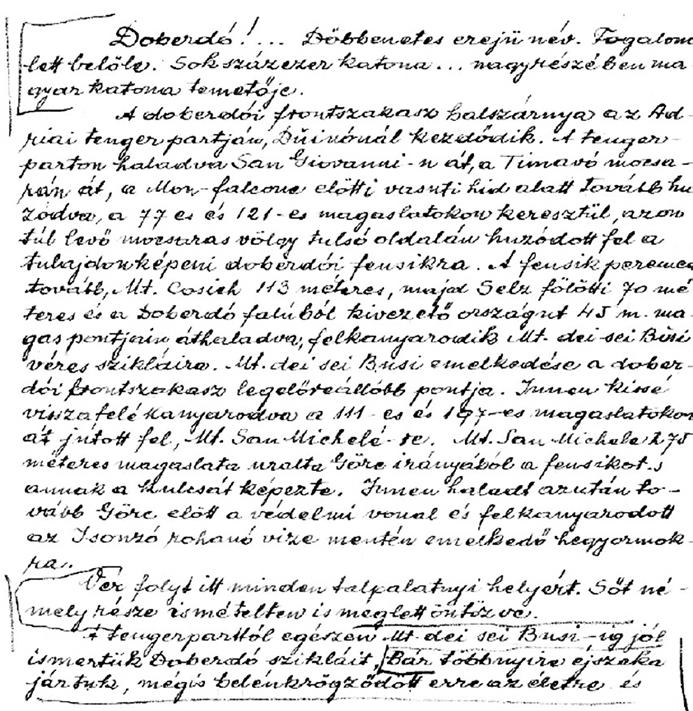 Doberdó!... Döbbenetes erejü név. Fogalom
lett belőle. Sokszázezer katona... nagyrészében ma-
gyar katona temetője.
A doberdói frontszakasz balszárnya az Ad-
riai tenger partján, Duinónál kezdődik. A tenger-
parton haladva San Giovanni-n át, a Timavó mocsa-
rán át, a Mon-falcone előtti vasuti hid alatt tovább hu
zódva, a 77 es és 121-es magaslatokon keresztül, azon
túl levő mocsaras völgy tulsó oldalán huzódott fel a
tulajdonképeni doberdói fensikra. A fensik peremén
tovább, Mt. Cosich 113 méteres, majd Selz fölötti 70 mé
teres és a Doberdó faluból kivezető országut 45 m. ma-
gas pontjain áthaladva, felkanyarodik Mt. dei sei Busi
véres szikláira. Mt. dei sei Busi emelkedése a dober-
dói frontszakasz legelőreállóbb pontja. Innen kissé
visszafelé kanyarodva a 111-es és 197-es magaslatokon
át jutott fel, Mt. San Michelé-re. Mt. San Michele 275
méteres magaslata uralta Görc irányából a fensikot s
annak a kulcsát képezte. Innen haladt azután to-
vább Görc előtt a védelmi vonal és felkanyarodott
az Isonzó rohanó vize mentén emelkedő hegyormok-
ra.
Vér folyt itt minden talpalatnyi helyért. Sőt né-
mely része ismételten is meglett öntözve.
A tengerparttól egészen Mt dei sei Busi-ig jól
ismertük Doberdó szikláit, Bár többnyire éjszaka
jártuk, mégis belénkrögződött erre az életre és